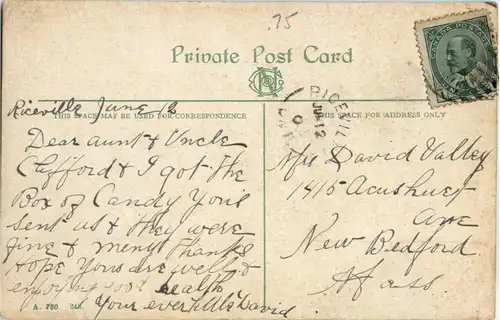 .75
CANADA POSTAGE
Private Post Card
RICEVIL
JU 12
Riceville June 12
THIS SPACE MAY BE USED FOR CORRESPONDENCE
THIS SPACE FOR ADDRESS ONLY
Dear aunt & Uncle
Clifford & I got the
Box of Candy You's
sent us & they were
fine & meny thanks
Hope Yous are well &
enjoying good health
Your ever David
Mrs David Valley
1415 Acushnet
Ave
New Bedford
Mass.
A. 780 246.